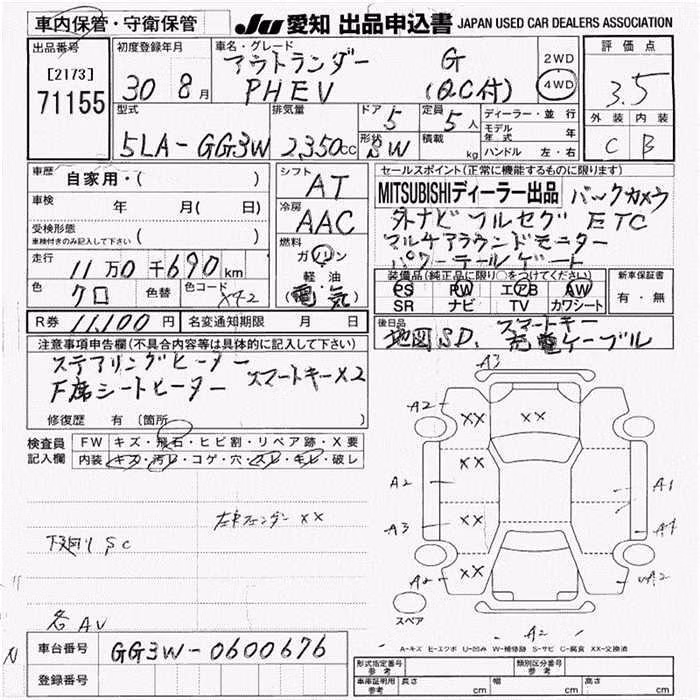 車内保管・守衛保管
JU 愛知 出品申込書 JAPAN USED CAR DEALERS ASSOCIATION
出品番号 初度登録年月 車名・グレード 評価点
[2173] 71155
30 8月
アウトランダー G
PHEV (QC付)
2WD
4WD
3.5
外装 内装
C B
型式 排気量 ドア 定員 ディーラー・並行
5LA-GG3W 2,350cc 5 5人
モデル年式 年
形状 積載 kg ハンドル 左・右
車歴 自家用・( )
シフト AT
車検 年 月(日)
冷房 AAC
受検形態 ( )
車検付きのみ記入して下さい
燃料 ガソリン
軽油
(電気)
走行 11万0千690km
色 クロ 色替 色コード X42
R券 11,100円 名変通知期限 月 日
セールスポイント(正常に機能するものに限ります)
MITSUBISHIディーラー出品 バックカメラ
外ナビ フルセグ ETC
マルチアラウンドモニター
パワーテールゲート
装備品(純正品に限り○をつけてください) 新車保証書
PS PW エアB AW 有・無
SR ナビ TV カワシート
後日品 スマートキー
地図SD. 充電ケーブル
注意事項申告欄(不具合内容等は具体的に記入して下さい)
ステアリングヒーター
F席シートヒーター スマートキーX2
修復歴 有〔箇所
検査員 FW キズ・飛石・ヒビ割・リペア跡・X要
記入欄 内装 キズ・汚レ・コゲ・穴・スレ・キレ・破レ
左右フェンダー XX
下廻り SC
各AV
車台番号 GG3W-0600676
登録番号
A3
A2 XX XX
XX
A2 A1
A3 XX A1
A2 XX A2
スペア
A2
A-キズ E-エクボ U-凹み W-補修跡 S-サビ C-腐食 XX-交換済
形式指定番号 参考 類別区分番号 参考
車庫証明用 参考 長さ cm 幅 cm 高さ cm